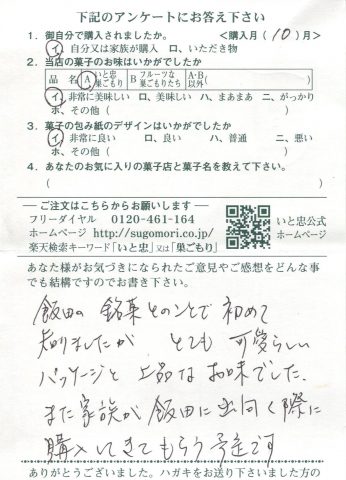 下記のアンケートにお答え下さい
1．御自分で購入されましたか。 ＜購入月（ 10 ）月＞
イ．自分又は家族が購入 ロ、いただき物
2．当店の菓子のお味はいかがでしたか
品 名 A いと忠巣ごもり B フルーツな巣ごもりたち A・B以外（ ）
イ．非常に美味しい ロ、美味しい ハ、まあまあ ニ、がっかり
ホ、その他（ ）
3．菓子の包み紙のデザインはいかがでしたか
イ．非常に良い ロ、良い ハ、普通 ニ、悪い
ホ、その他（ ）
4．あなたのお気に入りの菓子店と菓子名を教えて下さい。
（ ）
― ご注文はこちらからお願いします ―
フリーダイヤル 0120-461-164
ホームページ http://sugomori.co.jp/
楽天検索キーワード「いと忠」又は「巣ごもり」
いと忠公式
ホームページ
あなた様がお気づきになられたご意見やご感想をどんな事
でも結構ですのでお書き下さい。
飯田の銘菓とのことで初めて
知りましたが とても可愛らしい
パッケージと上品なお味でした.
また家族が飯田に出向く際に
購入してきてもらう予定です
ありがとうございました。ハガキをお送り下さいました方の